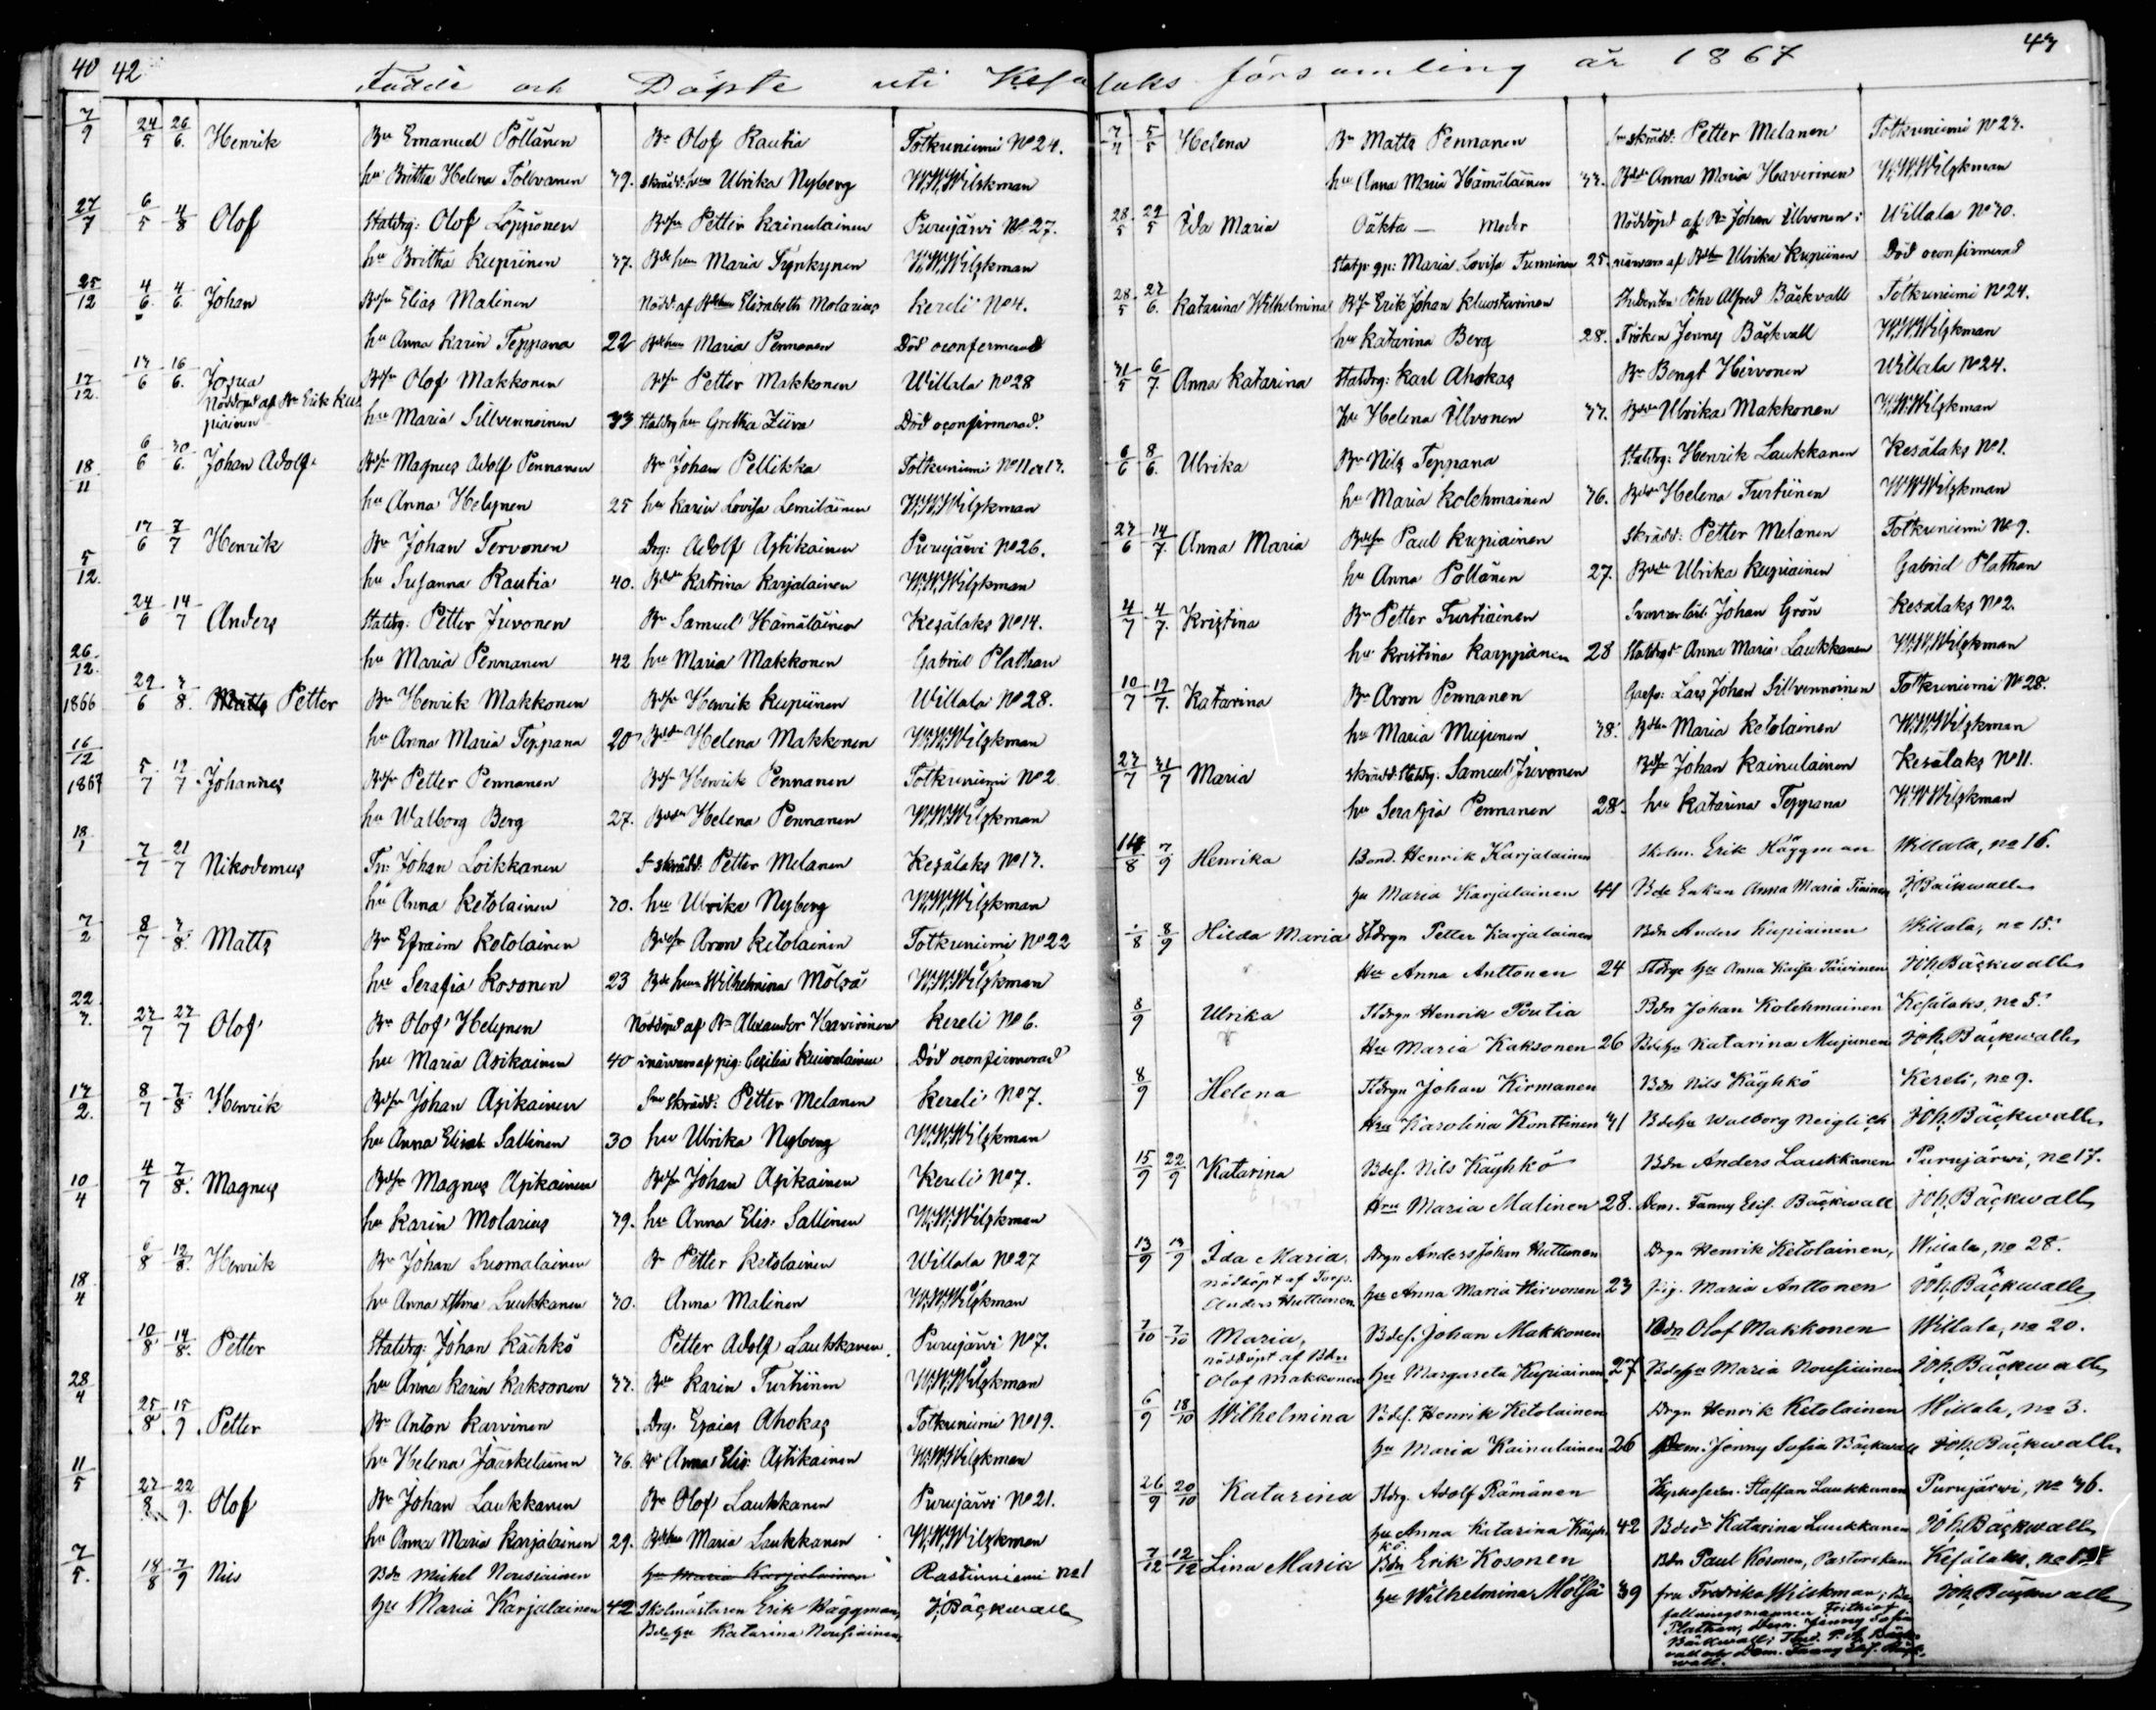 40 42 43
Födde och Döpte uti Kesälaks församling år 1867
7/9
24/5 26/6. Henrik Bn Emanuel Pöllänen Bn Olof Rautia Totkuniemi No 24.
hu Britha Helena Tolvanen 39. skrädd: hu Ulrika Nyberg W.W.Wilskman
27/7
6/5 4/8 Olof Staldrg: Olof Löppönen Bdsn Petter Kainulainen Purujärvi No 27.
hu Britha Kupiinen 37. Bde hun Maria Tynkynen W.W.Wilskman
25/12
4/6. 4/6. Johan Bdsn Elias Malinen Nödd af Bdehun Elisabeth Molarius Kereli No 4.
hu Anna Karin Teppana 22 Bdehun Maria Pennanen Död oconfirmerad
17/12.
13/6 16/6. Josua Bdsn Olof Makkonen Bdsn Petter Makkonen Willala No 28
Nöddöpt af Bn Erik Kupiainen hu Maria Sillvennoinen 33 Staldrg hu Gretha Död oconfirmerad.
18/11
6/6 30/6. Johan Adolf Bdsn Magnus Adolf Pennanen Bn Johan Pellikka Totkuniemi No 11 o 13.
hu Anna Helynen 25 hu Karin Lovisa Lemiläinen W.W.Wilskman
5/12.
13/6 7/7 Henrik Bn Johan Tervonen Drg: Adolf Asikainen Purujärvi No 26.
hu Susanna Rautia 40. Bdedr Katrina Karjalainen W.W.Wilskman
26/12. 1866
24/6 14/7 Anders Staldrg: Petter Juvonen Bn Samuel Hämäläinen Kesälaks No 14.
hu Maria Pennanen 42 hu Maria Makkonen Gabriel Plathan
29/6 3/8. Matts Petter Bn Henrik Makkonen Bdsn Henrik Kupiinen Willala No 28.
hu Anna Maria Teppana 20 Bdedr Helena Makkonen W.W.Wilskman
16/12 1867
5/7 12/7 Johannes Bdsn Petter Pennanen Bdsn Henrik Pennanen Totkuniemi No 2
hu Walborg Berg 27. Bdedr Helena Pennanen W.W.Wilskman
18/1
7/7 21/7 Nikodemus Tr: Johan Loikkanen S skrädd: Petter Melanen Kesälaks No 13.
hu Anna Ketolainen 30. hu Ulrika Nyberg W.W.Wilskman
7/2
8/7 3/8. Matts Bn Efraim Ketolainen Bdesn Aron Ketolainen Totkuniemi No 22
hu Serafia Kosonen 23 Bde hun Wilhelmina Mölsä W.W.Wilskman
22/3.
27/7 27/7 Olof Bn Olof Helynen Nöddöpt af Bn Alexander Havirinen Kereli No 6.
hu Maria Asikainen 40 i närvaro af pig: Cesilia Kuivalainen Död oconfirmerad
17/2.
8/7 7/8 Henrik Bdsn Johan Asikainen Snr skrädd: Petter Melanen Kereli No 7.
hu Anna Elisab. Sallinen 30 hu Ulrika Nyberg W.W.Wilskman
10/4
4/7 7/8. Magnus Bdsn Magnus Asikainen Bdsn Johan Asikainen Kereli No 7.
hu Karin Molarius 39. hu Anna Elis: Sallinen W.W.Wilskman
18/4
6/8 12/8. Henrik Bn Johan Suomalainen Bn Petter Ketolainen Willala No 27
hu Anna Laukkanen 30. Anna Malinen W.W.Wilskman
28/4
10/8. 14/8. Petter Staldrg: Johan Käihkö Petter Adolf Laukkanen Purujärvi No 7.
hu Anna Karin Kaksonen 33. Bn Karin Turtiinen W.W.Wilskman
25/8. 15/9. Petter Bn Anton Karvinen Drg. Esaias Ahokas Totkuniemi No 19.
hu Helena Jääskeläinen 36. Bn Anna Elis: Asikainen W.W.Wilskman
11/5
27/8. 22/9. Olof Bn Johan Laukkanen Bn Olof Laukkanen Purujärvi No 21.
hu Anna Maria Karjalainen 29. Bdehun Maria Laukkanen W.W.Wilskman
7/5.
18/8 7/9 Nils Bdn Michel Nousiainen hu Maria Karjalainen Rastinniemi no 1
Hu Maria Karjalainen 42 Skolmästaren Erik Häggman, J. Bäckwall
Bdehu Katarina Nousiainen,
7/4 5/5 Helena Bn Matts Pennanen Snr skrädd: Petter Melanen Totkuniemi No 23.
hu Anna Maria Hämäläinen 33. Bdedr Anna Maria Havirinen W.W.Wilskman
28/5 29/5 Ida Maria Oäkta — Moder Nöddöpt af Bn Johan Ulvonen i Willala No 30.
Statp. gp: Maria Lovisa Tunninen 25. närvaro af Bdehu Ulrika Kupiinen Död oconfirmerad
28/5 27/6. Katarina Wilhelmina Bdsn Erik Johan Kluostarinen Studenten Pehr Alfred Bäckvall Totkuniemi No 24.
hu Katarina Berg 28. Fröken Jenny Bäckvall W.W.Wilskman
31/5 6/7. Anna Katarina Staldrg: Karl Ahokas Bn Bengt Hirvonen Willala No 24.
hu Helena Ulvonen 37. Bdedr Ulrika Makkonen W.W.Wilskman
6/6 8/6. Ulrika Bn Nils Teppana Staldrg: Henrik Laukkanen Kesälaks No 1.
hu Maria Kolehmainen 36. Bdedr Helena Turtiinen W.W.Wilskman
27/6 14/7. Anna Maria Bdesn Paul Kupiainen Skrädd: Petter Melanen Totkuniemi No 9.
hu Anna Pöllänen 27. Bdedr Ulrika Kupiainen Gabriel Plathan
4/7 4/7. Kristina Bn Petter Turtiainen Johan Grön Kesälaks No 2.
hu Kristina Karppanen 28 Staldrgdr Anna Maria Laukkanen W.W.Wilskman
10/7 19/7. Katarina Bn Aron Pennanen Lars Johan Sillvennoinen Totkuniemi No 28.
hu Maria Mujunen 38. Bdehu Maria Ketolainen W.W.Wilskman
27/7 31/7 Maria skrädd: Staldrg: Samuel Juvonen Bdsn Johan Kainulainen Kesälaks No 11.
hu Serafia Pennanen 28. hu Katarina Teppana W.W.Wilskman
14/8 7/9 Henrika Bond. Henrik Karjalainen Skolm. Erik Häggman Willala, no 16.
hu Maria Karjalainen 41 Bde Enkan Anna Maria Tiainen J Bäckwall
1/8 8/9 Hilda Maria Stdrgn Petter Karjalainen Bdn Anders Kupiainen Willala, no 15.
Hu Anna Anttonen 24 Stdrgs hu Anna Kaisa Päivinen Joh. Bäckwall
8/9 Ulrika Stdrgn Henrik Poutia Bdn Johan Kolehmainen Kesälaks, no 5.
Hu Maria Kaksonen 26 Bdehu Katarina Mujunen Joh. Bäckwall
8/9 Helena Stdrgn Johan Kirmanen Bdn Nils Käyhkö Kereli, no 9.
Hu Karolina Konttinen 31 Bdehu Walborg Neiglich Joh. Bäckwall
15/9 22/9 Katarina Bdes. Nils Käyhkö Bdn Anders Laukkanen Purujärwi, no 17.
Hu Maria Malinen 28. Dem. Fanny Elis. Bäckwall Joh. Bäckwall
13/9 13/9 Ida Maria, Drgn Anders Johan Huttunen Drgn Henrik Ketolainen, Willala, no 28.
nöddöpt af Torp. Anders Huttunen hu Anna Maria Hirvonen 23 pig. Maria Anttonen Joh. Bäckwall
7/10 7/10 Maria, Bdes. Johan Makkonen Bdn Olof Makkonen Willala, no 20.
nöddöpt af Bdn Olof Makkonen hu Margareta Kupiainen 27 Bdehu Maria Nousiainen Joh. Bäckwall
6/9 18/10 Wilhelmina Bdes. Henrik Ketolainen Drgn Henrik Ketolainen Willala, no 3.
hu Maria Kainulainen 26 Dem. Jenny Sofia Bäckwall Joh. Bäckwall
26/9 20/10 Katarina Stdrg. Adolf Rämänen Staffan Laukkanen Purujärwi, no 36.
hu Anna Katarina Käyhkö 42 Bdedr Katarina Laukkanen Joh. Bäckwall
7/12 12/12 Lina Maria Bdn Erik Kosonen Bdn Paul Kosonen, Pastorskan Kesälaks,
hu Wilhelmina Mölsä 39 fru Fredrika Wilskman; Be- Joh. Bäckwall
fallningsmannen Frithiof
Plathan, Dem. Jenny Sofia
Bäckwall; Stud. P. A. Bäck-
wall och Dem. Fanny Elis. Bäck-
wall.